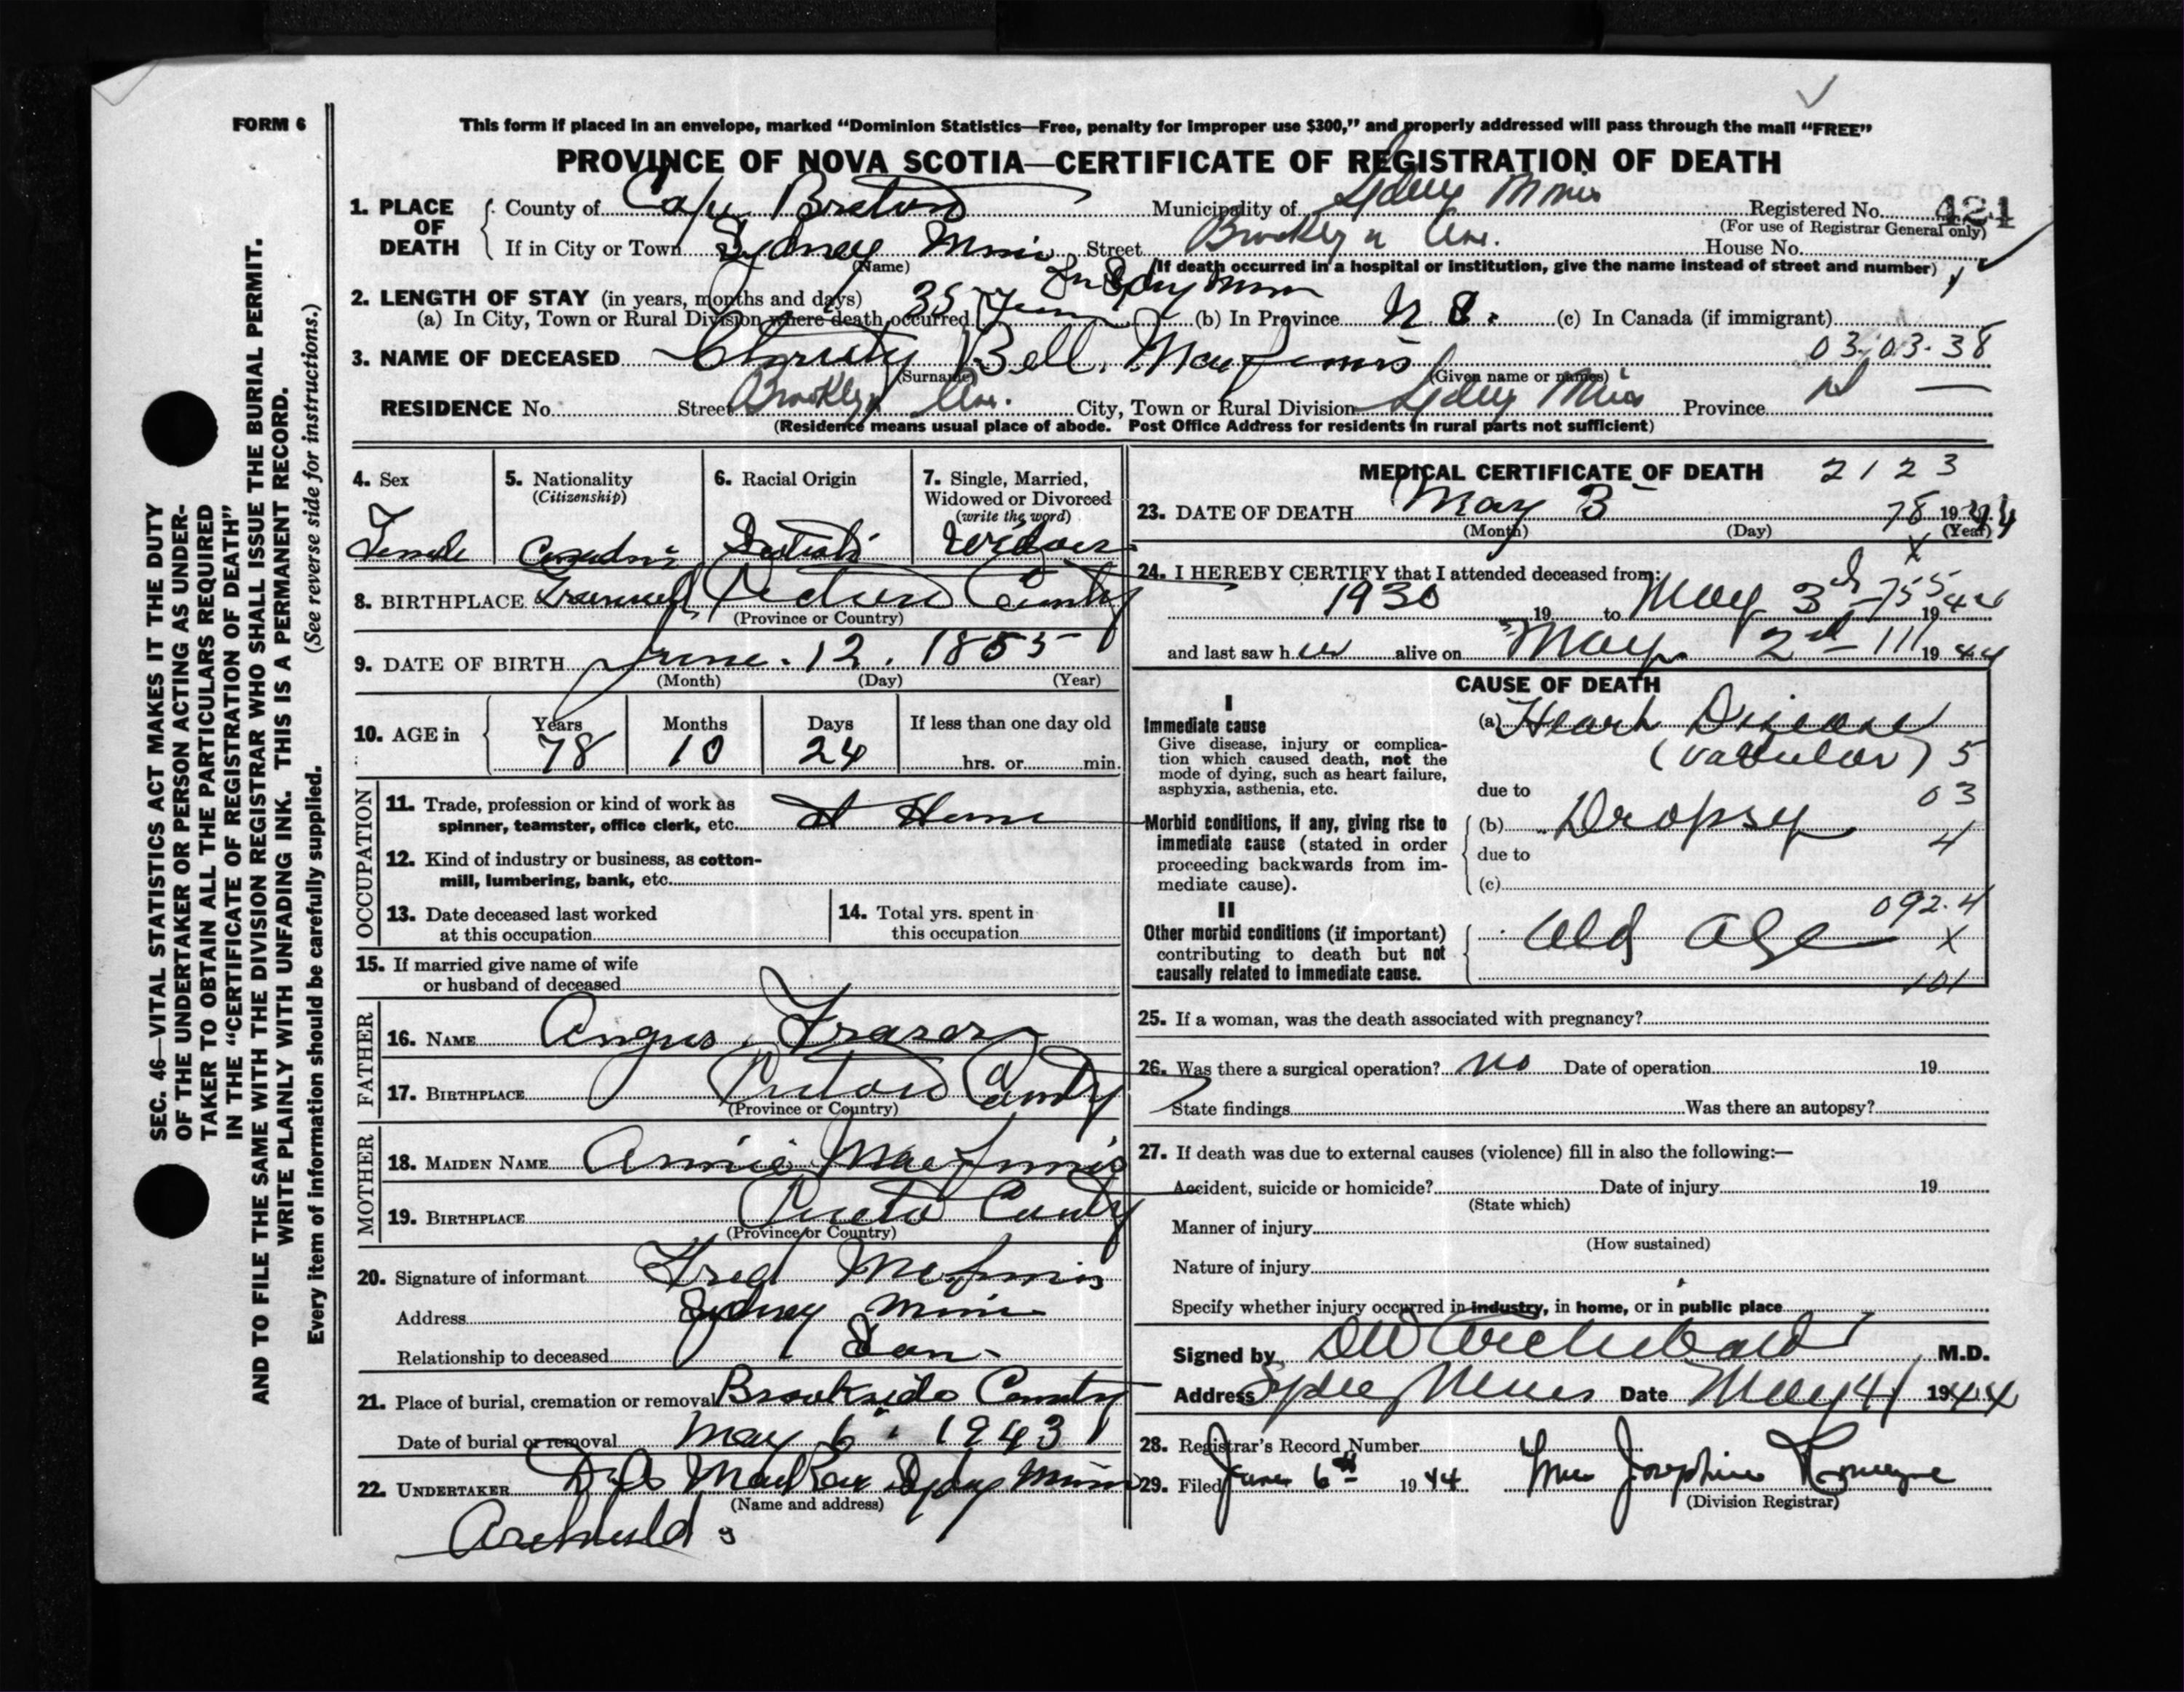 FORM 6
This form if placed in an envelope, marked “Dominion Statistics—Free, penalty for improper use $300,” and properly addressed will pass through the mail “FREE”
PROVINCE OF NOVA SCOTIA—CERTIFICATE OF REGISTRATION OF DEATH
1. PLACE OF DEATH
County of Cape Breton Municipality of Sydney Mines Registered No. 421
(For use of Registrar General only)
If in City or Town Sydney Mines Street Brooklyn Ave. House No.
(Name) (If death occurred in a hospital or institution, give the name instead of street and number)
2. LENGTH OF STAY (in years, months and days) In Sydney Mines
(a) In City, Town or Rural Division where death occurred 35 Years (b) In Province N S. (c) In Canada (if immigrant)
3. NAME OF DECEASED Christy Bell. MacInnis 03.03.38
(Surname) (Given name or names)
RESIDENCE No. Street Brooklyn Ave. City, Town or Rural Division Sydney Mines Province
(Residence means usual place of abode. Post Office Address for residents in rural parts not sufficient)
4. Sex
Female
5. Nationality
(Citizenship)
Canadian
6. Racial Origin
Scotish
7. Single, Married, Widowed or Divorced
(write the word)
Widow
8. BIRTHPLACE Pictou County
(Province or Country)
9. DATE OF BIRTH June. 12. 1865
(Month) (Day) (Year)
10. AGE in
Years Months Days If less than one day old
78 10 24 hrs. or min.
OCCUPATION
11. Trade, profession or kind of work as
spinner, teamster, office clerk, etc. At Home
12. Kind of industry or business, as cotton-
mill, lumbering, bank, etc.
13. Date deceased last worked
at this occupation
14. Total yrs. spent in
this occupation
15. If married give name of wife
or husband of deceased
FATHER
16. NAME Angus Fraser
17. BIRTHPLACE Pictou County
(Province or Country)
MOTHER
18. MAIDEN NAME Annie MacInnis
19. BIRTHPLACE Pictou County
(Province or Country)
20. Signature of informant Fred McInnis
Address Sydney Mines
Relationship to deceased Son
21. Place of burial, cremation or removal Brookside Cemetry
Date of burial or removal May 6. 1943
22. UNDERTAKER Sydney Mines
(Name and address)
Archibald
MEDICAL CERTIFICATE OF DEATH 2123
23. DATE OF DEATH May 3 78 1944
(Month) (Day) (Year)
24. I HEREBY CERTIFY that I attended deceased from:
1930 19 to May 3rd 755 1944
and last saw her alive on May 2nd 111 1944
CAUSE OF DEATH
I
Immediate cause
Give disease, injury or complica-
tion which caused death, not the
mode of dying, such as heart failure,
asphyxia, asthenia, etc.
(a) Heart Disease
(valvular) 5
due to 03
Morbid conditions, if any, giving rise to
immediate cause (stated in order
proceeding backwards from im-
mediate cause).
(b) Dropsy
due to 4
(c)
II
Other morbid conditions (if important)
contributing to death but not
causally related to immediate cause.
092.4
Old age x
101
25. If a woman, was the death associated with pregnancy?
26. Was there a surgical operation? no Date of operation 19
State findings Was there an autopsy?
27. If death was due to external causes (violence) fill in also the following:—
Accident, suicide or homicide? Date of injury 19
(State which)
Manner of injury
(How sustained)
Nature of injury
Specify whether injury occurred in industry, in home, or in public place
Signed by DW Archibald M.D.
Address Sydney Mines Date May 4 1944
28. Registrar's Record Number
29. Filed June 6th 1944 Mrs Josephine
(Division Registrar)
SEC. 46—VITAL STATISTICS ACT MAKES IT THE DUTY
OF THE UNDERTAKER OR PERSON ACTING AS UNDER-
TAKER TO OBTAIN ALL THE PARTICULARS REQUIRED
IN THE “CERTIFICATE OF REGISTRATION OF DEATH”
AND TO FILE THE SAME WITH THE DIVISION REGISTRAR WHO SHALL ISSUE THE BURIAL PERMIT.
WRITE PLAINLY WITH UNFADING INK. THIS IS A PERMANENT RECORD.
Every item of information should be carefully supplied. (See reverse side for instructions.)